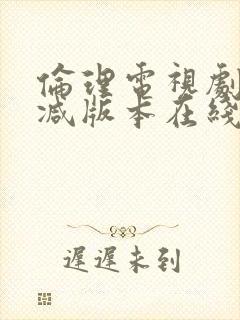 倫理電視劇
减版本在綫
遲遲未到